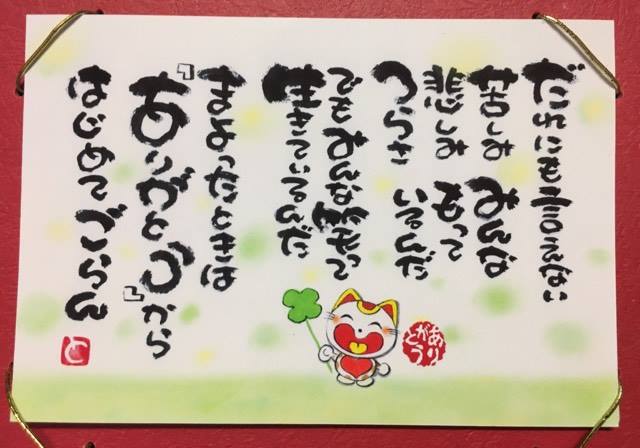 だれにも言えない
苦しみ みんな
悲しみ もって
つらさ いるんだ
でもみんな笑って
生きているんだ
まよったときは
『ありがとう』から
はじめてごらん
ありがとう
と